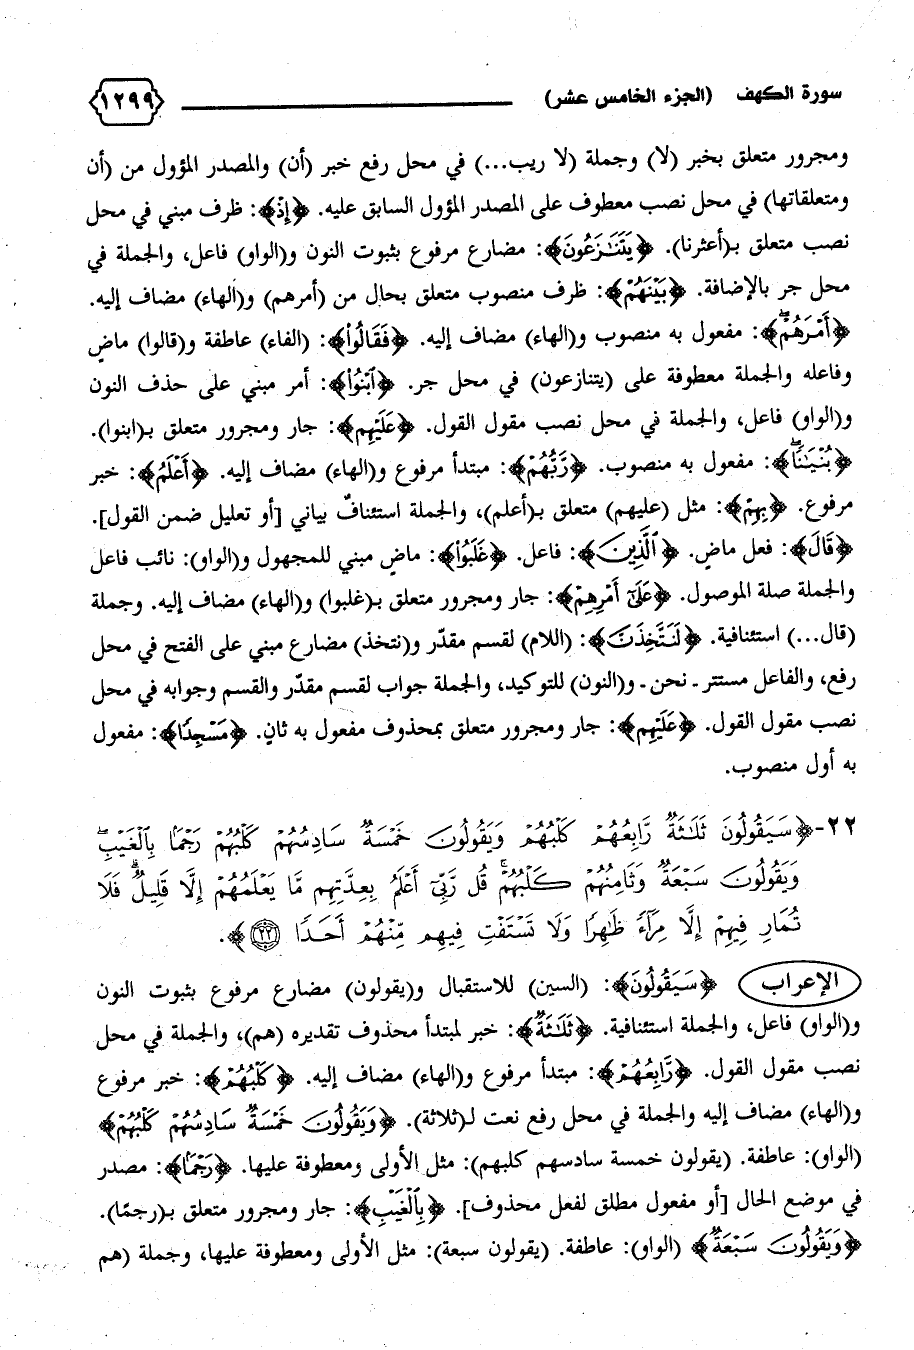 سورة الكهف (الجزء الخامس عشر) ١٢٩٩
ومجرور متعلق بخبر (لا) وجملة (لا ريب...) في محل رفع خبر (أن) والمصدر المؤول من (أن
ومتعلقاتها) في محل نصب معطوف على المصدر المؤول السابق عليه. ﴿إِذْ﴾: ظرف مبني في محل
نصب متعلق بـ(أعثرنا). ﴿يَتَنَـٰزَعُونَ﴾: مضارع مرفوع بثبوت النون و(الواو) فاعل، والجملة في
محل جر بالإضافة. ﴿بَيْنَهُمْ﴾: ظرف منصوب متعلق بحال من (أمرهم) و(الهاء) مضاف إليه.
﴿أَمْرَهُمْۖ﴾: مفعول به منصوب و(الهاء) مضاف إليه. ﴿فَقَالُوا۟﴾: (الفاء) عاطفة و(قالوا) ماضٍ
وفاعله والجملة معطوفة على (يتنازعون) في محل جر. ﴿ٱبْنُوا۟﴾: أمر مبني على حذف النون
و(الواو) فاعل، والجملة في محل نصب مقول القول. ﴿عَلَيْهِم﴾: جار ومجرور متعلق بـ(ابنوا).
﴿بُنْيَـٰنًاۖ﴾: مفعول به منصوب. ﴿رَّبُّهُمْ﴾: مبتدأ مرفوع و(الهاء) مضاف إليه. ﴿أَعْلَمُ﴾: خبر
مرفوع. ﴿بِهِمْۚ﴾: مثل (عليهم) متعلق بـ(أعلم)، والجملة استئنافٌ بياني [أو تعليل ضمن القول].
﴿قَالَ﴾: فعل ماضٍ. ﴿ٱلَّذِينَ﴾: فاعل. ﴿غَلَبُوا۟﴾: ماضٍ مبني للمجهول و(الواو): نائب فاعل
والجملة صلة الموصول. ﴿عَلَىٰٓ أَمْرِهِمْ﴾: جار ومجرور متعلق بـ(غلبوا) و(الهاء) مضاف إليه. وجملة
(قال...) استئنافية. ﴿لَنَتَّخِذَنَّ﴾: (اللام) لقسم مقدّر و(نتخذ) مضارع مبني على الفتح في محل
رفع، والفاعل مستتر ـ نحن ـ و(النون) للتوكيد، والجملة جواب لقسم مقدّر والقسم وجوابه في محل
نصب مقول القول. ﴿عَلَيْهِم﴾: جار ومجرور متعلق بمحذوف مفعول به ثانٍ. ﴿مَّسْجِدًا﴾: مفعول
به أول منصوب.
٢٢-﴿سَيَقُولُونَ ثَلَـٰثَةٌ رَّابِعُهُمْ كَلْبُهُمْ وَيَقُولُونَ خَمْسَةٌ سَادِسُهُمْ كَلْبُهُمْ رَجْمًۢا بِٱلْغَيْبِۖ
وَيَقُولُونَ سَبْعَةٌ وَثَامِنُهُمْ كَلْبُهُمْۚ قُل رَّبِّىٓ أَعْلَمُ بِعِدَّتِهِم مَّا يَعْلَمُهُمْ إِلَّا قَلِيلٌۗ فَلَا
تُمَارِ فِيهِمْ إِلَّا مِرَآءً ظَـٰهِرًا وَلَا تَسْتَفْتِ فِيهِم مِّنْهُمْ أَحَدًا ٢٢﴾.
الإعراب ﴿سَيَقُولُونَ﴾: (السين) للاستقبال و(يقولون) مضارع مرفوع بثبوت النون
و(الواو) فاعل، والجملة استئنافية. ﴿ثَلَـٰثَةٌ﴾: خبر لمبتدأ محذوف تقديره (هم)، والجملة في محل
نصب مقول القول. ﴿رَّابِعُهُمْ﴾: مبتدأ مرفوع و(الهاء) مضاف إليه. ﴿كَلْبُهُمْ﴾: خبر مرفوع
و(الهاء) مضاف إليه والجملة في محل رفع نعت لـ(ثلاثة). ﴿وَيَقُولُونَ خَمْسَةٌ سَادِسُهُمْ كَلْبُهُمْ﴾
(الواو): عاطفة. (يقولون خمسة سادسهم كلبهم): مثل الأولى ومعطوفة عليها. ﴿رَجْمًۢا﴾: مصدر
في موضع الحال [أو مفعول مطلق لفعل محذوف]. ﴿بِٱلْغَيْبِ﴾: جار ومجرور متعلق بـ(رجمًا).
﴿وَيَقُولُونَ سَبْعَةٌ﴾ (الواو): عاطفة. (يقولون سبعة): مثل الأولى ومعطوفة عليها، وجملة (هم